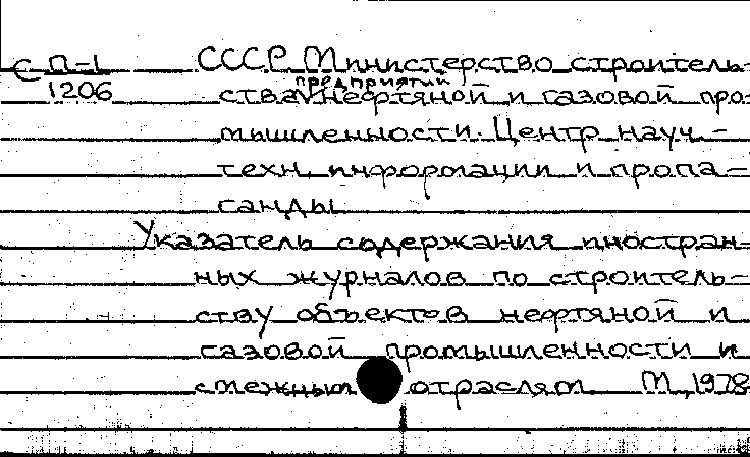 С П-1 СССР. Министерство строитель-
1206 предприятий
ства нефтяной и газовой про-
мышленности. Центр науч.-
техн. информации и пропа-
ганды
Указатель содержания иностран-
ных журналов по строитель-
ству объектов нефтяной и
газовой промышленности и
смежным отраслям. М., 1978